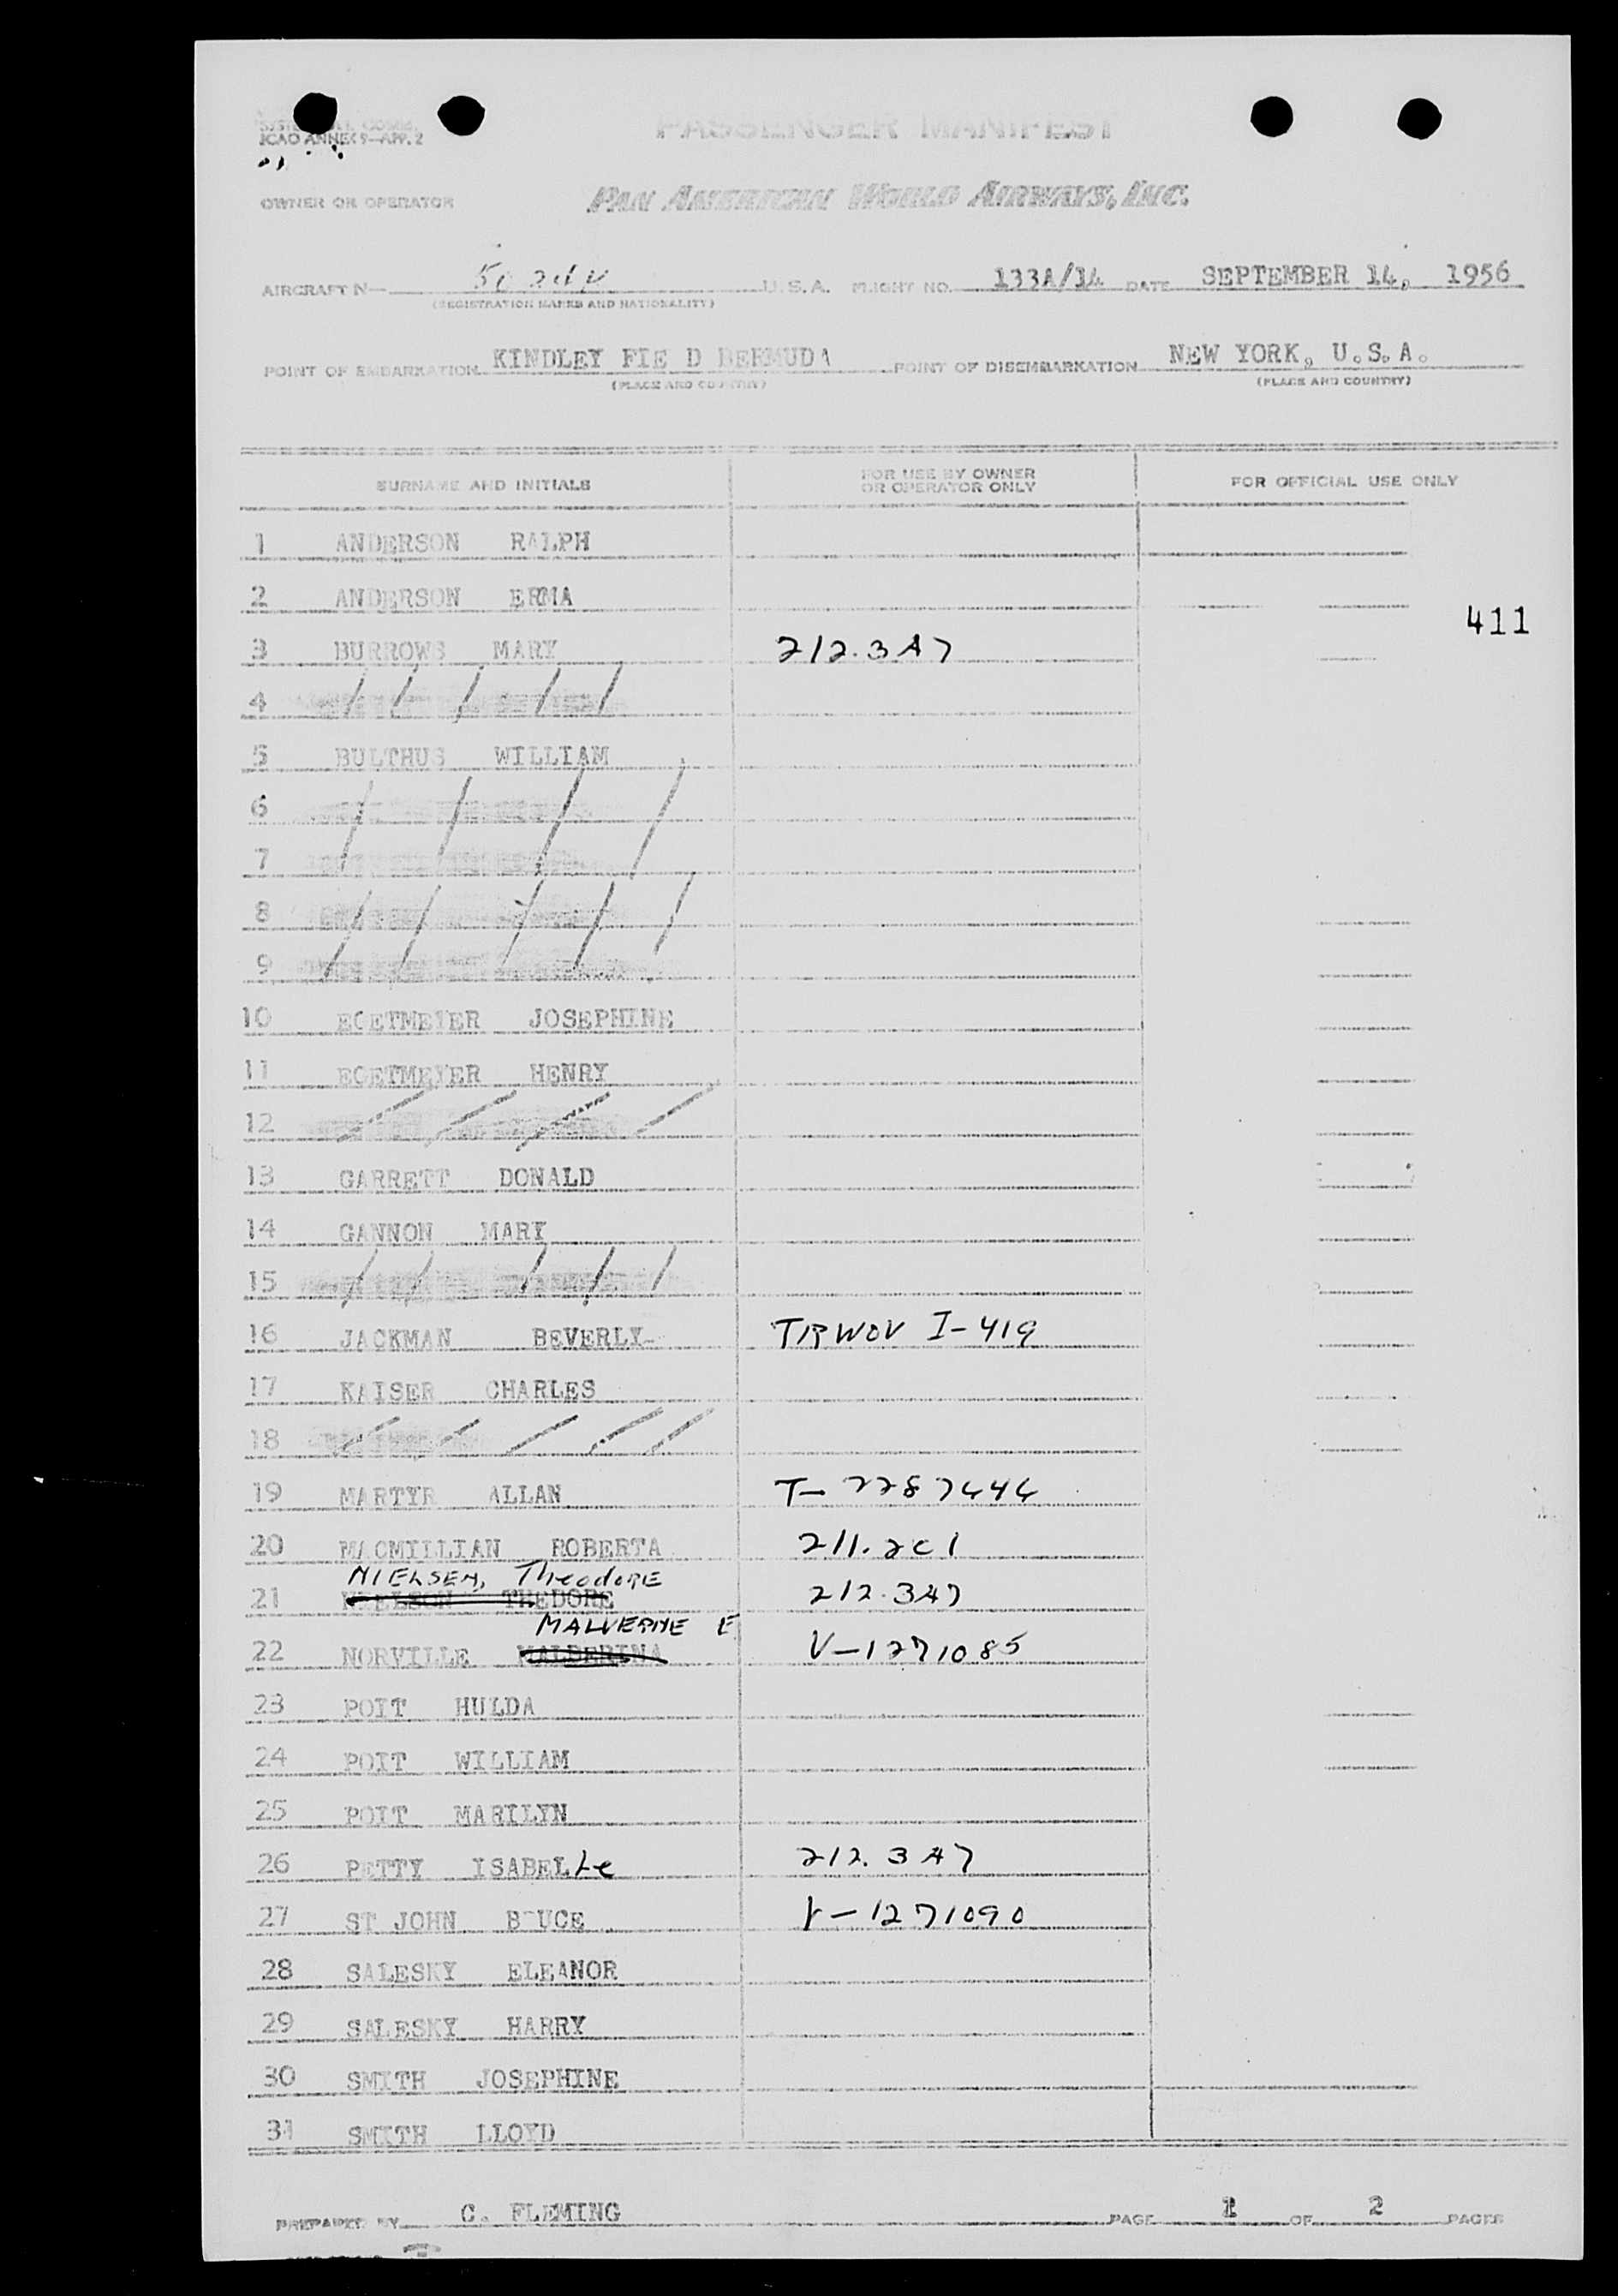 ICAO ANNEX 9—APP. 2
PASSENGER MANIFEST
OWNER OR OPERATOR PAN AMERICAN WORLD AIRWAYS, INC.
AIRCRAFT N— U.S.A. FLIGHT NO. 133A/14 DATE SEPTEMBER 14, 1956
(REGISTRATION MARKS AND NATIONALITY)
POINT OF EMBARKATION KINDLEY FIE D BERMUDA POINT OF DISEMBARKATION NEW YORK, U.S.A.
(PLACE AND COUNTRY) (PLACE AND COUNTRY)
SURNAME AND INITIALS FOR USE BY OWNER OR OPERATOR ONLY FOR OFFICIAL USE ONLY
1 ANDERSON RALPH
2 ANDERSON ERMA
411
3 BURROWS MARY 212.3A7
4
5 BULTHUS WILLIAM
6
7
8
9
10 EGETMEYER JOSEPHINE
11 EGETMEYER HENRY
12
13 GARRETT DONALD
14 GANNON MARY
15
16 JACKMAN BEVERLY TRWOV I-419
17 KAISER CHARLES
18
19 MARTYR ALLAN
20 MACMILLIAN ROBERTA 211.2C1
NIELSEN, Theodore
21 THEDORE 212.3A7
MALVERNE E
22 NORVILLE MALBERINA V-1271085
23 POIT HULDA
24 POIT WILLIAM
25 POIT MARILYN
26 PETTY ISABELLe 212.3A7
27 ST JOHN B UCE V-1271090
28 SALESKY ELEANOR
29 SALESKY HARRY
30 SMITH JOSEPHINE
31 SMITH LLOYD
PREPARED BY C. FLEMING PAGE 1 OF 2 PAGES